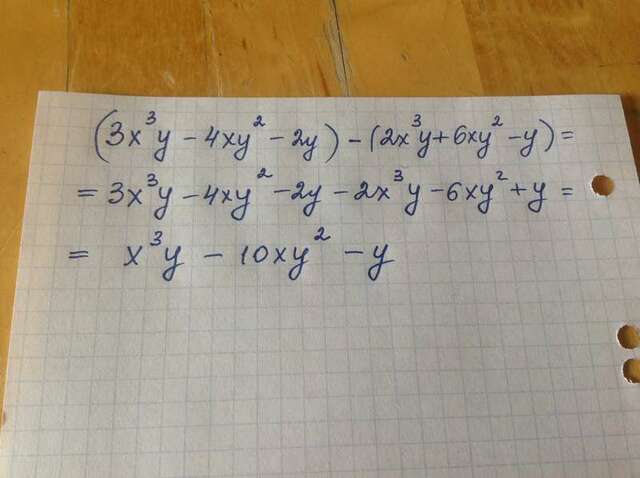 (3x³y - 4xy² - 2y) - (2x³y + 6xy² - y) =
= 3x³y - 4xy² - 2y - 2x³y - 6xy² + y =
= x³y - 10xy² - y